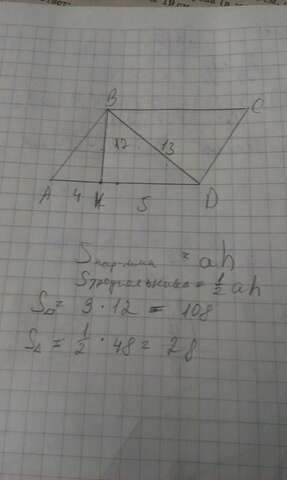 B C
12 13
A 4 K 5 D
Sпар-мма = ah
Sтреугольника = 1/2 ah
S▱ = 9 · 12 = 108
S△ = 1/2 · 48 = 28